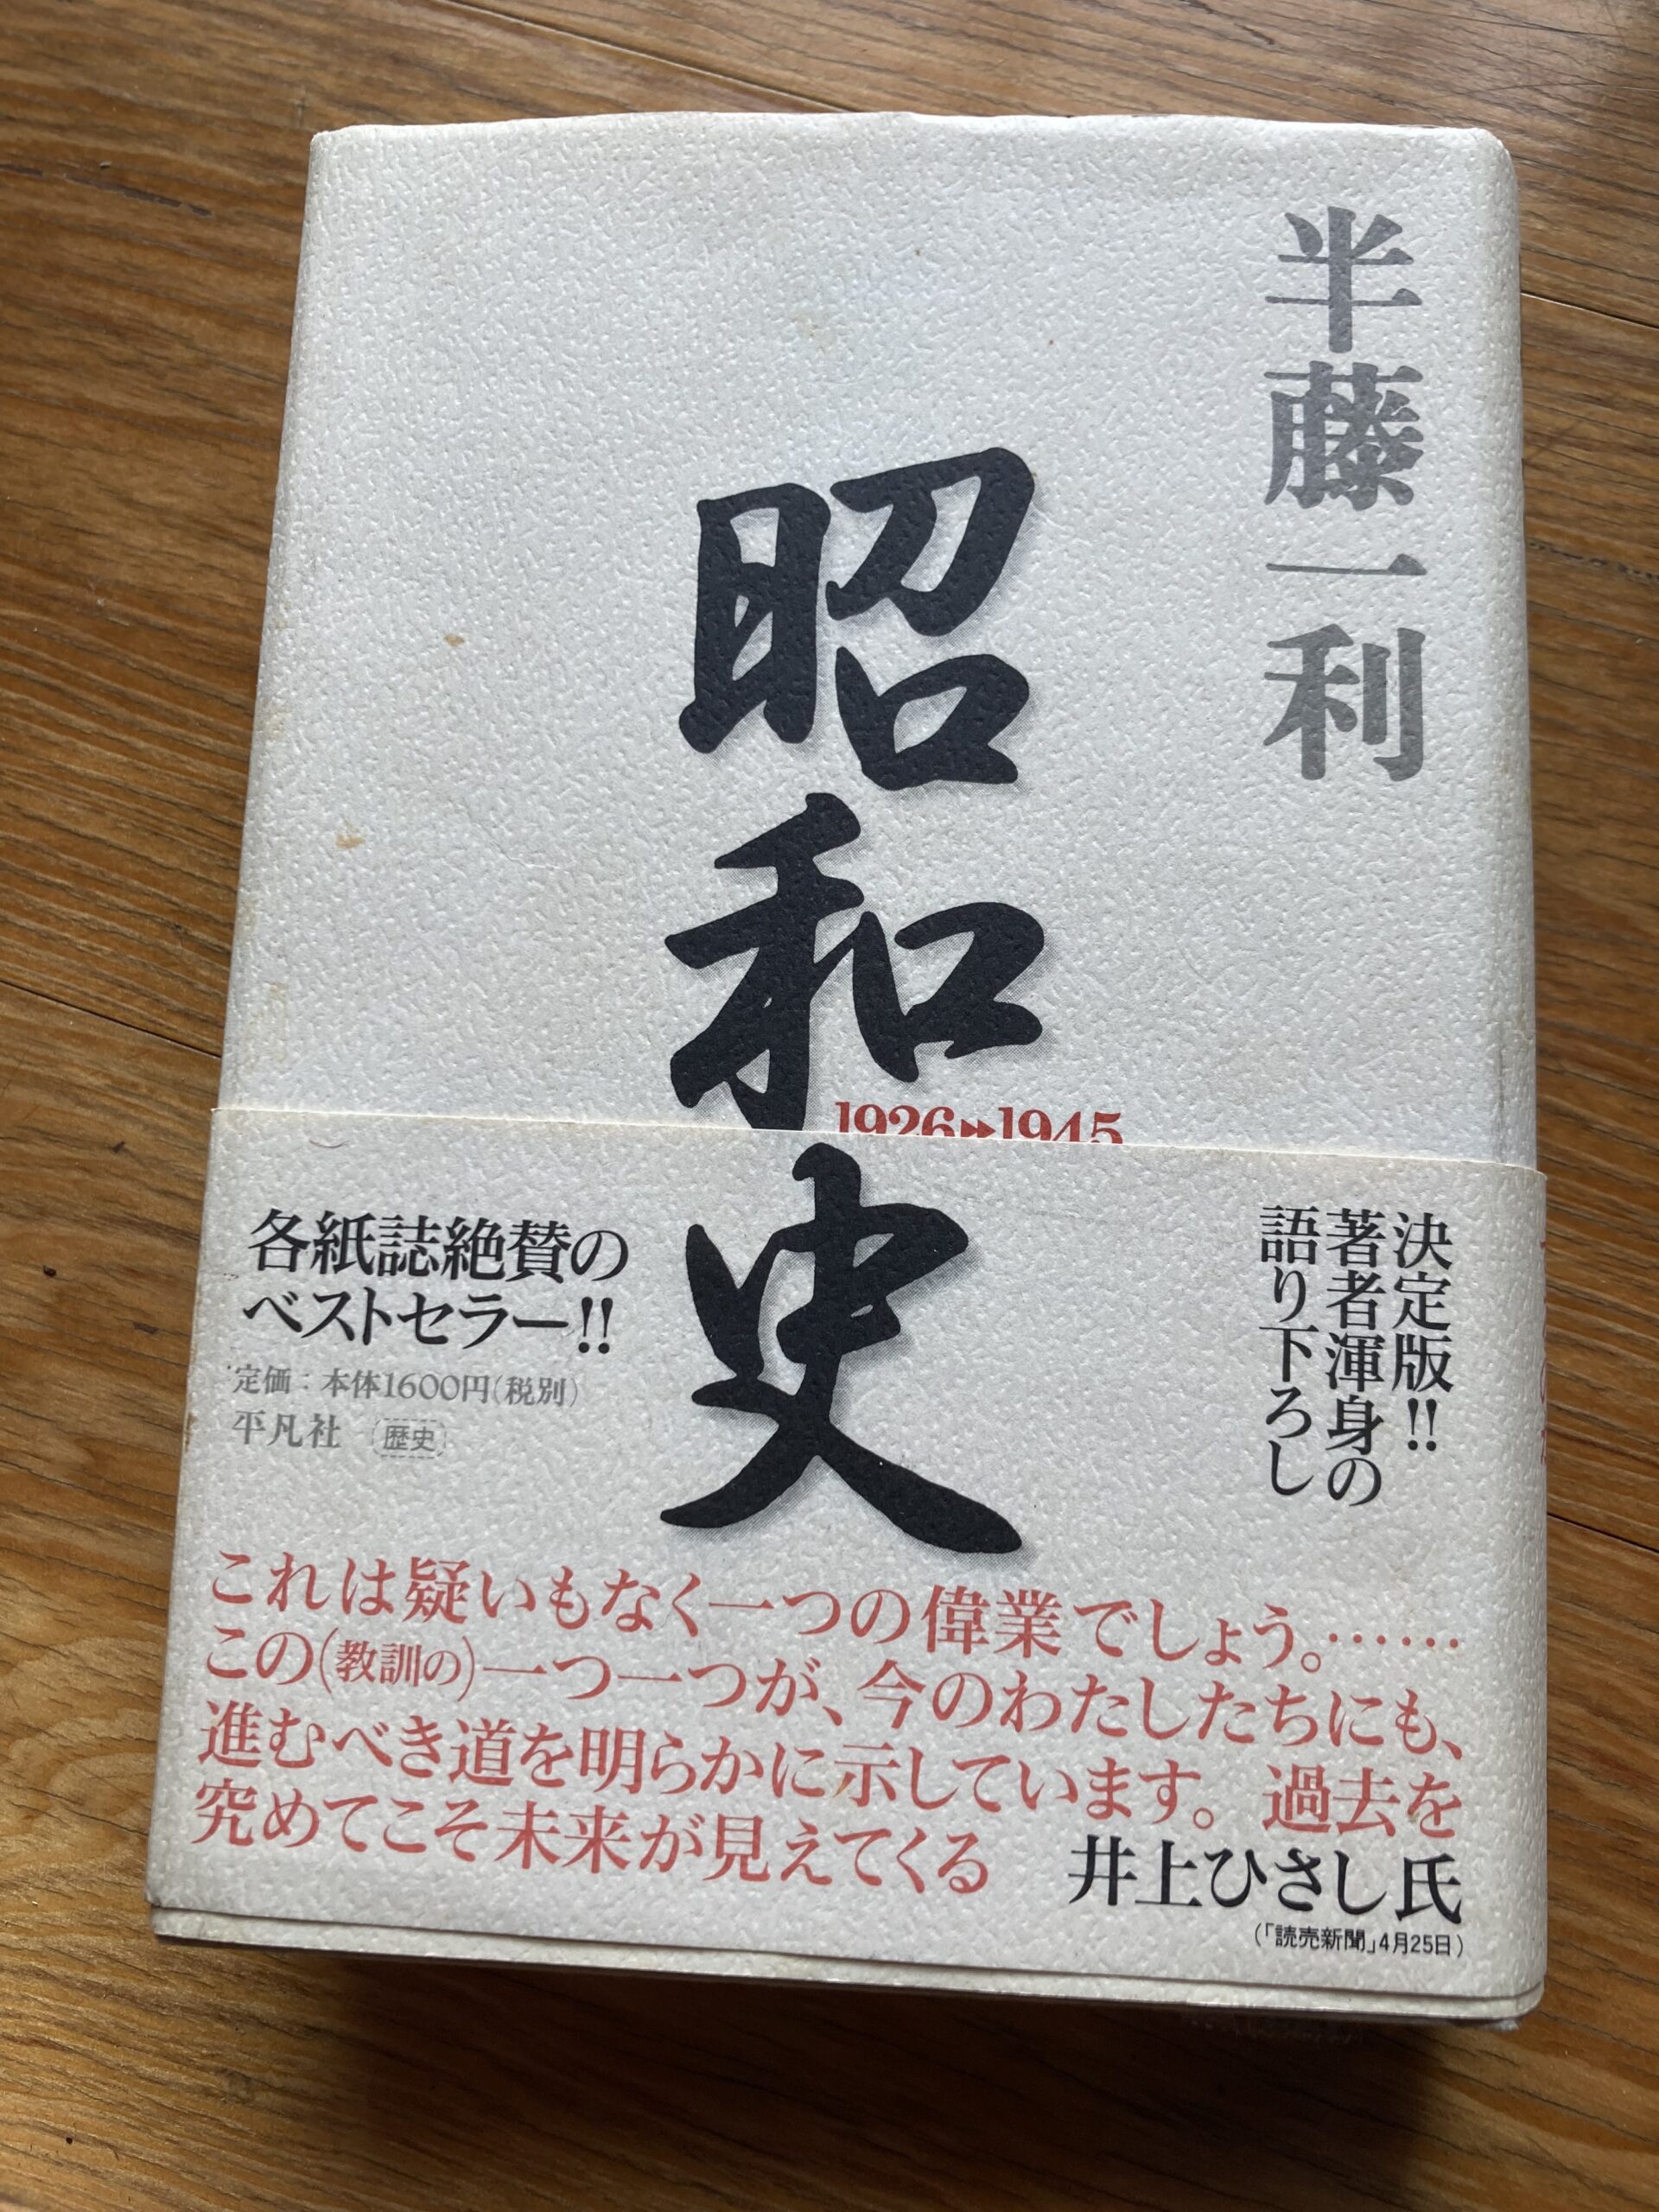 半藤一利
昭和史
1926▸▸1945
決定版!!
著者渾身の
語り下ろし
各紙誌絶賛の
ベストセラー!!
定価：本体1600円(税別)
平凡社 歴史
これは疑いもなく一つの偉業でしょう。……
この(教訓の)一つ一つが、今のわたしたちにも、
進むべき道を明らかに示しています。過去を
究めてこそ未来が見えてくる
井上ひさし氏
(「読売新聞」4月25日)